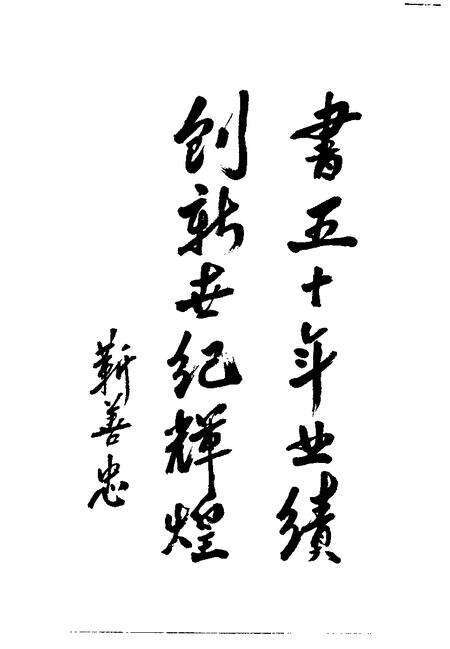 書五十年业績
创新世纪輝煌
靳善忠